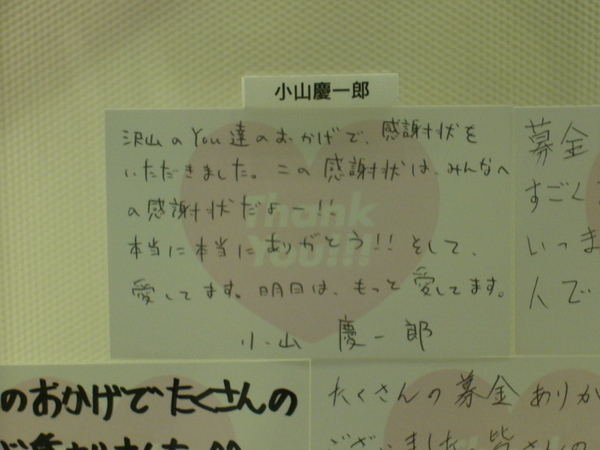 小山慶一郎
沢山のYou達のおかげで、感謝状を
いただきました。この感謝状は、みんなへ
の感謝状だよー!!
本当に本当にありがとう!!そして、
愛してます。明日は、もっと愛してます。
小山 慶一郎
Thank
YOU!!!
募金
すごく
いっま
人で
のおかげでたくさんの
たくさんの募金ありか
ございました。皆さんの